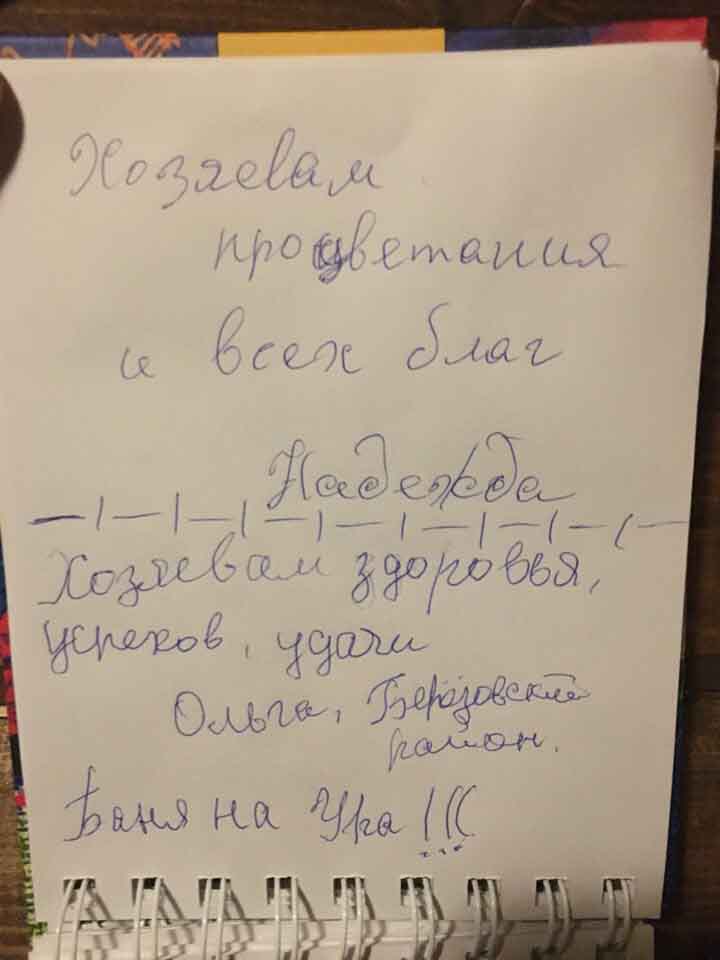 Хозяевам
процветания
и всех благ
Надежда
Хозяевам здоровья,
успехов, удачи
Ольга, Берёзовский
район.
Баня на Ура!!!